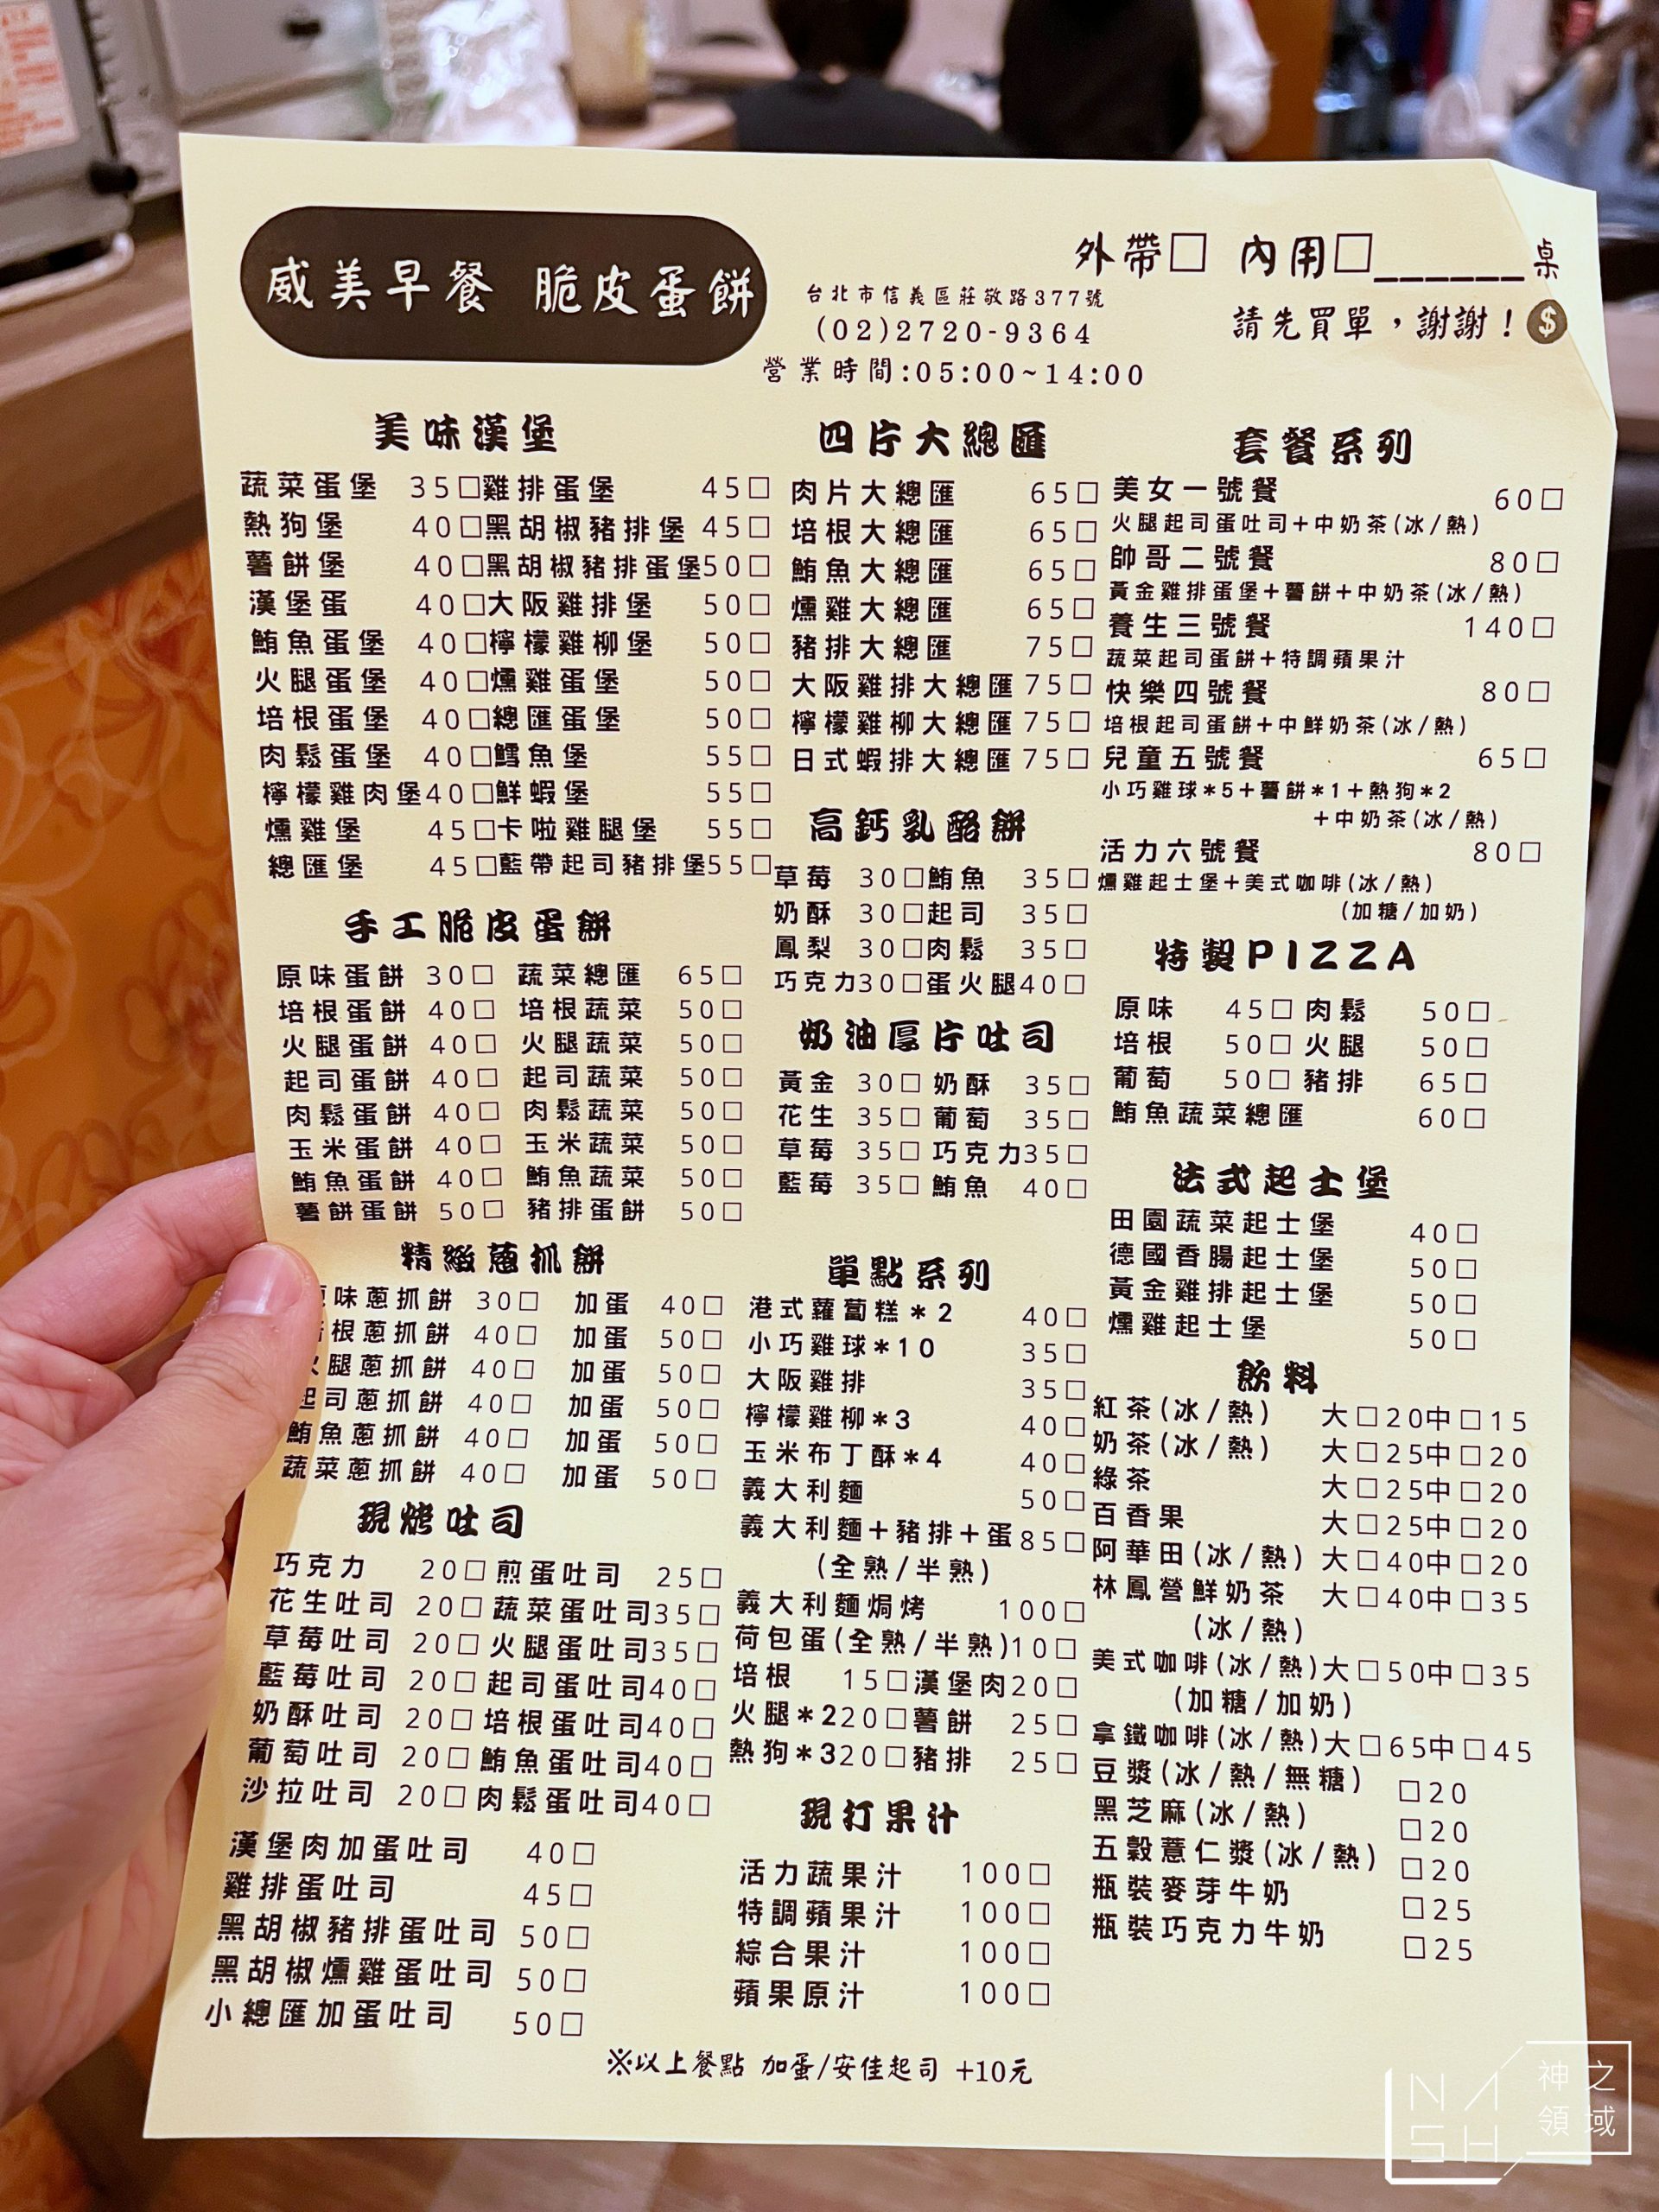 威美早餐 脆皮蛋餅
台北市信義區莊敬路377號
(02)2720-9364
營業時間:05:00~14:00
外帶□ 內用□______桌
請先買單，謝謝！$
美味漢堡
蔬菜蛋堡 35□雞排蛋堡 45□
熱狗堡 40□黑胡椒豬排堡 45□
薯餅堡 40□黑胡椒豬排蛋堡50□
漢堡蛋 40□大阪雞排堡 50□
鮪魚蛋堡 40□檸檬雞柳堡 50□
火腿蛋堡 40□燻雞蛋堡 50□
培根蛋堡 40□總匯蛋堡 50□
肉鬆蛋堡 40□鱈魚堡 55□
檸檬雞肉堡40□鮮蝦堡 55□
燻雞堡 45□卡啦雞腿堡 55□
總匯堡 45□藍帶起司豬排堡55□
手工脆皮蛋餅
原味蛋餅 30□ 蔬菜總匯 65□
培根蛋餅 40□ 培根蔬菜 50□
火腿蛋餅 40□ 火腿蔬菜 50□
起司蛋餅 40□ 起司蔬菜 50□
肉鬆蛋餅 40□ 肉鬆蔬菜 50□
玉米蛋餅 40□ 玉米蔬菜 50□
鮪魚蛋餅 40□ 鮪魚蔬菜 50□
薯餅蛋餅 50□ 豬排蛋餅 50□
精緻蔥抓餅
味蔥抓餅 30□ 加蛋 40□
根蔥抓餅 40□ 加蛋 50□
火腿蔥抓餅 40□ 加蛋 50□
起司蔥抓餅 40□ 加蛋 50□
鮪魚蔥抓餅 40□ 加蛋 50□
蔬菜蔥抓餅 40□ 加蛋 50□
現烤吐司
巧克力 20□ 煎蛋吐司 25□
花生吐司 20□ 蔬菜蛋吐司35□
草莓吐司 20□ 火腿蛋吐司35□
藍莓吐司 20□ 起司蛋吐司40□
奶酥吐司 20□ 培根蛋吐司40□
葡萄吐司 20□ 鮪魚蛋吐司40□
沙拉吐司 20□ 肉鬆蛋吐司40□
漢堡肉加蛋吐司 40□
雞排蛋吐司 45□
黑胡椒豬排蛋吐司 50□
黑胡椒燻雞蛋吐司 50□
小總匯加蛋吐司 50□
四片大總匯
肉片大總匯 65□
培根大總匯 65□
鮪魚大總匯 65□
燻雞大總匯 65□
豬排大總匯 75□
大阪雞排大總匯 75□
檸檬雞柳大總匯 75□
日式蝦排大總匯 75□
高鈣乳酪餅
草莓 30□鮪魚 35□
奶酥 30□起司 35□
鳳梨 30□肉鬆 35□
巧克力30□蛋火腿40□
奶油厚片吐司
黃金 30□ 奶酥 35□
花生 35□ 葡萄 35□
草莓 35□ 巧克力35□
藍莓 35□ 鮪魚 40□
單點系列
港式蘿蔔糕*2 40□
小巧雞球*10 35□
大阪雞排 35□
檸檬雞柳*3 40□
玉米布丁酥*4 40□
義大利麵 50□
義大利麵+豬排+蛋85□
(全熟/半熟)
義大利麵焗烤 100□
荷包蛋(全熟/半熟)10□
培根 15□漢堡肉20□
火腿*220□薯餅 25□
熱狗*320□豬排 25□
現打果汁
活力蔬果汁 100□
特調蘋果汁 100□
綜合果汁 100□
蘋果原汁 100□
套餐系列
美女一號餐 60□
火腿起司蛋吐司+中奶茶(冰/熱)
帥哥二號餐 80□
黃金雞排蛋堡+薯餅+中奶茶(冰/熱)
養生三號餐 140□
蔬菜起司蛋餅+特調蘋果汁
快樂四號餐 80□
培根起司蛋餅+中鮮奶茶(冰/熱)
兒童五號餐 65□
小巧雞球*5+薯餅*1+熱狗*2
+中奶茶(冰/熱)
活力六號餐 80□
燻雞起士堡+美式咖啡(冰/熱)
(加糖/加奶)
特製PIZZA
原味 45□ 肉鬆 50□
培根 50□ 火腿 50□
葡萄 50□ 豬排 65□
鮪魚蔬菜總匯 60□
法式起士堡
田園蔬菜起士堡 40□
德國香腸起士堡 50□
黃金雞排起士堡 50□
燻雞起士堡 50□
飲料
紅茶(冰/熱) 大□20中□15
奶茶(冰/熱) 大□25中□20
綠茶 大□25中□20
百香果 大□25中□20
阿華田(冰/熱) 大□40中□20
林鳳營鮮奶茶 大□40中□35
(冰/熱)
美式咖啡(冰/熱)大□50中□35
(加糖/加奶)
拿鐵咖啡(冰/熱)大□65中□45
豆漿(冰/熱/無糖) □20
黑芝麻(冰/熱) □20
五穀薏仁漿(冰/熱) □20
瓶裝麥芽牛奶 □25
瓶裝巧克力牛奶 □25
※以上餐點 加蛋/安佳起司 +10元
NASH
神之領域